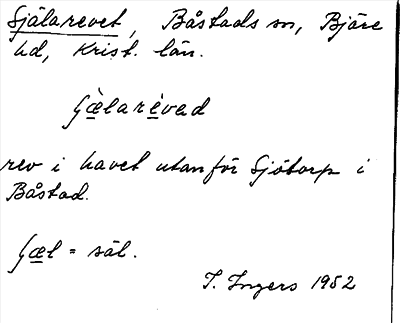 Själarevet, Båstads sn, Bjäre
hd, Krist. län.
ʃæ̀larèvəd
rev i havet utanför Sjötorp i
Båstad.
ʃæl = säl.
I. Ingers 1952